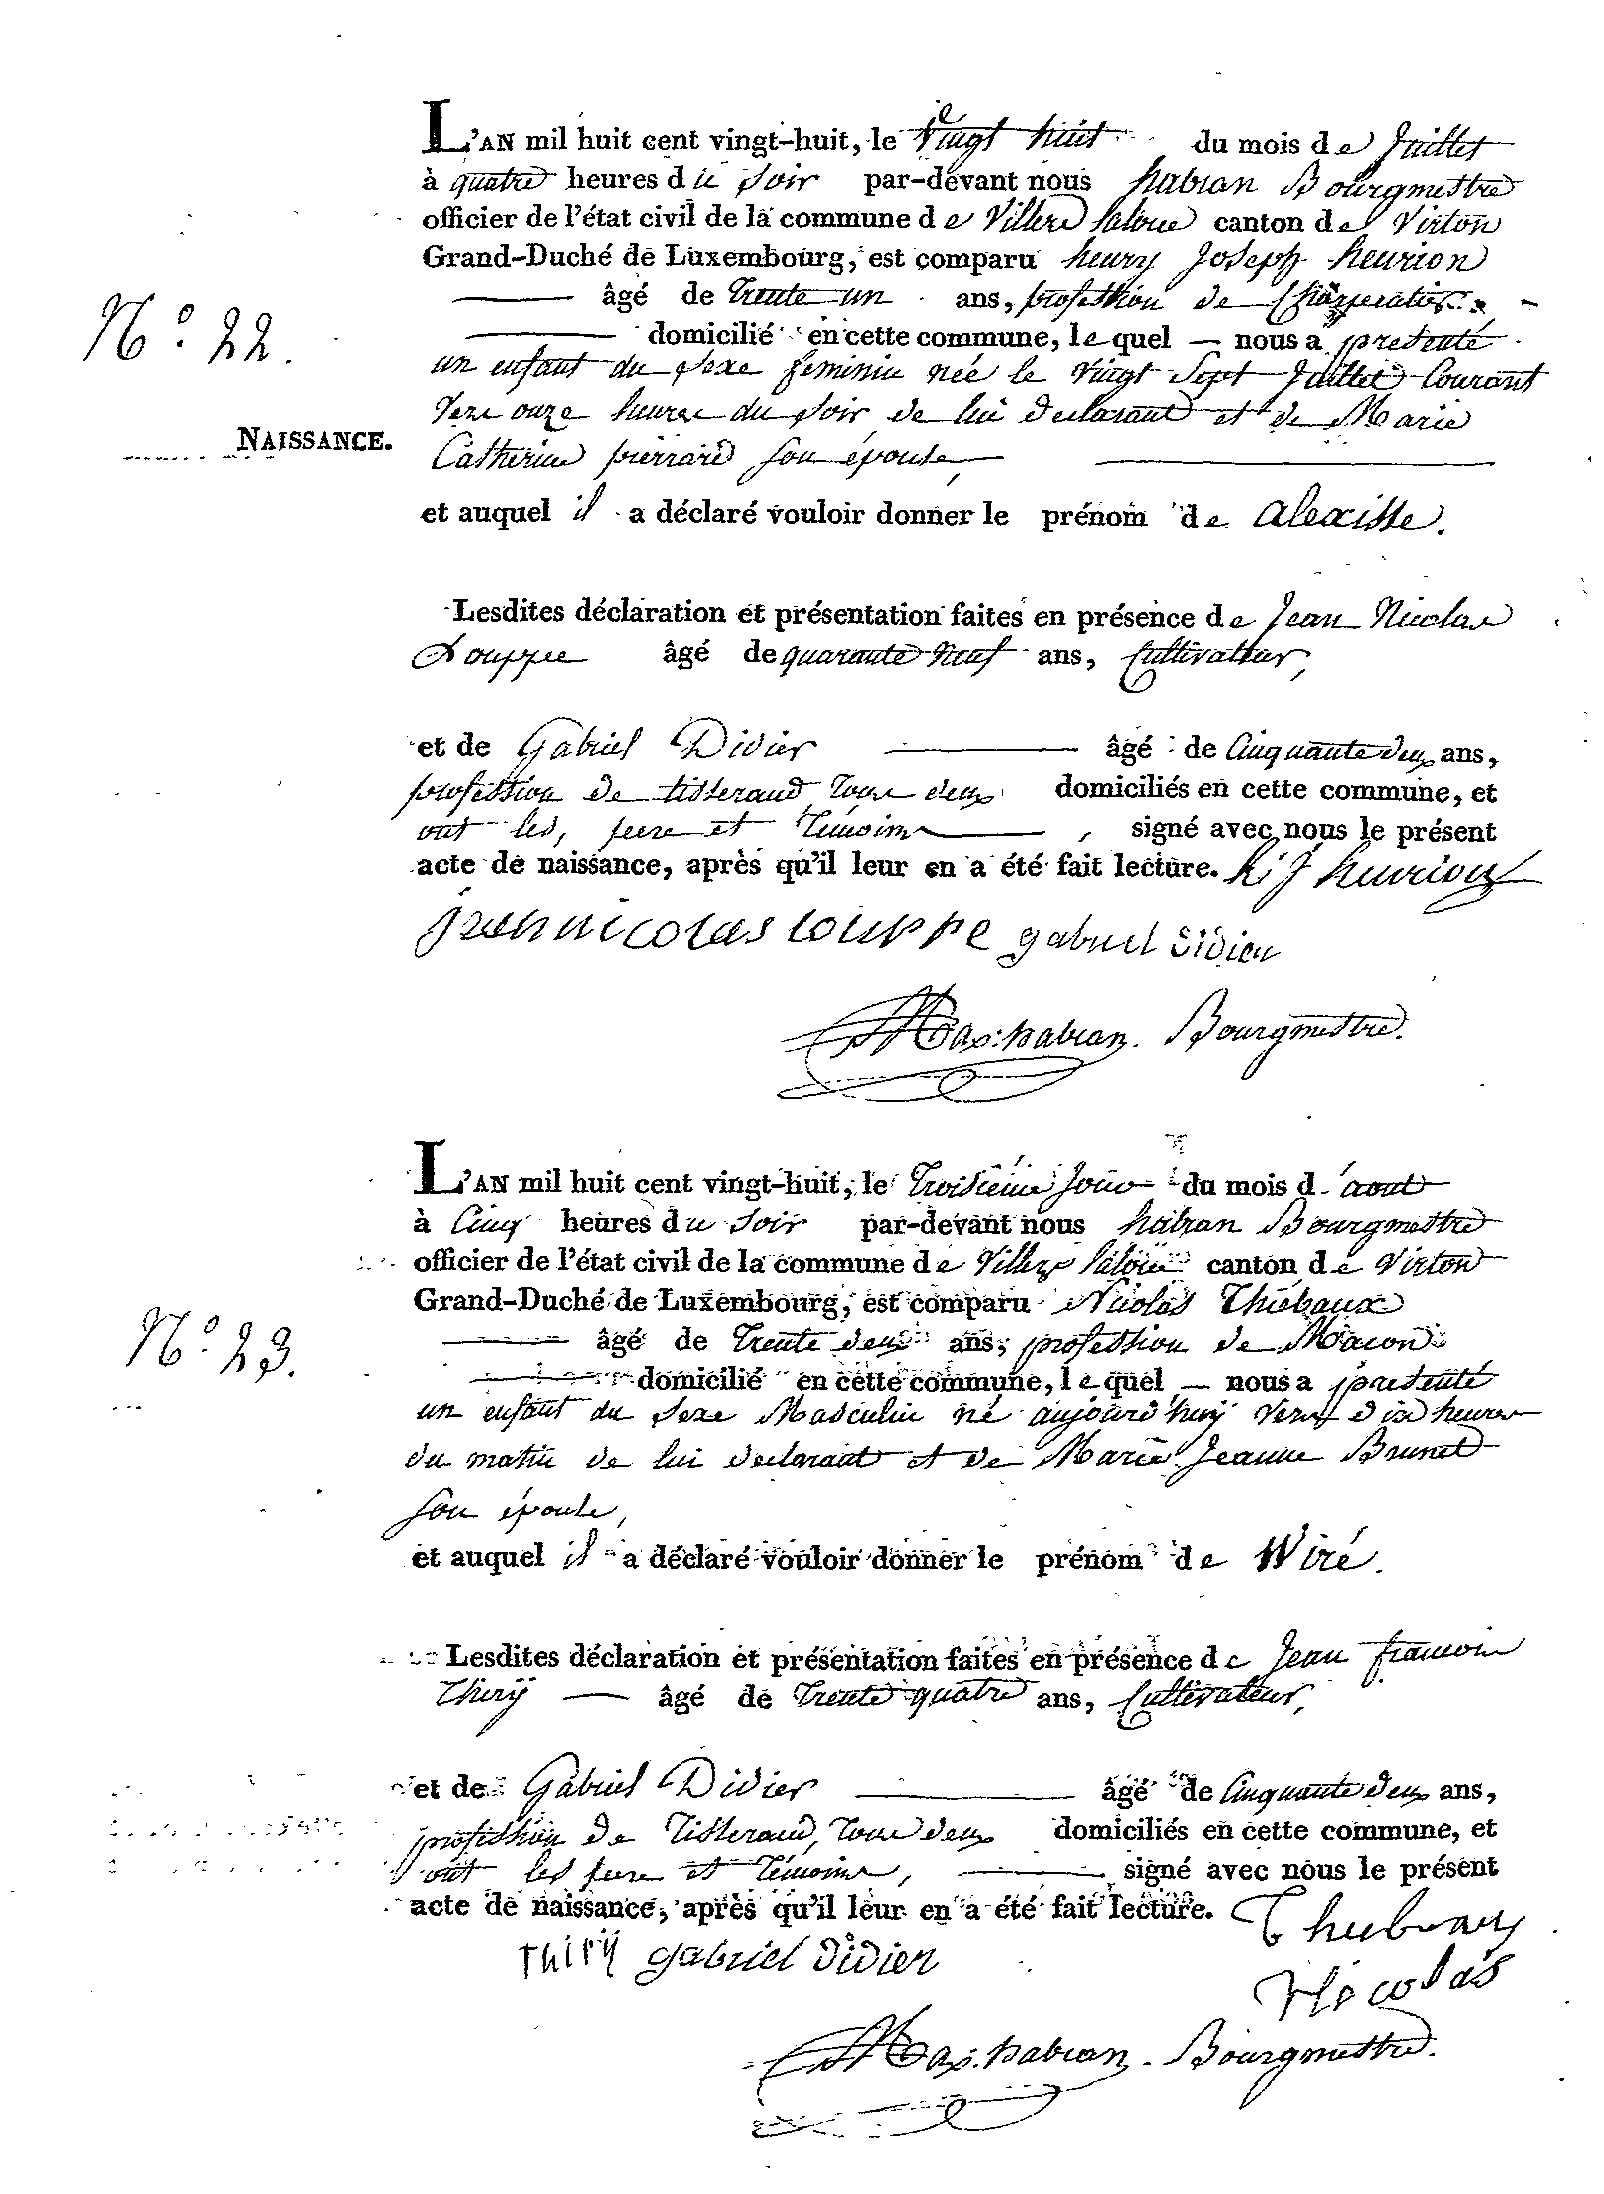 L'AN mil huit cent vingt-huit, le Vingt huit du mois de Juillet
à quatre heures du Soir par-devant nous habran Bourgmestre
officier de l'état civil de la commune de Villers Laloue canton de Virton
Grand-Duché de Luxembourg, est comparu henry Joseph henrion
âgé de Trente un ans, profession de
N.º 22.
domicilié en cette commune, lequel nous a présenté
un enfant du Sexe féminin née le Vingt Sept Juillet Courant
Vers onze heures du Soir de lui déclarant et de Marie
NAISSANCE.
Catherine pierrard Son épouse,
et auquel il a déclaré vouloir donner le prénom de alexisse.
Lesdites déclaration et présentation faites en présence de Jean Nicolas
Louppe âgé de quarante Neuf ans, Cultivateur,
et de Gabriel Didier âgé de Cinquante deux ans,
profession de tisserand, Tous deux domiciliés en cette commune, et
ont les, pere et Témoins, signé avec nous le présent
acte de naissance, après qu'il leur en a été fait lecture. h j henrion
jean nicolas louppe gabriel didier
Max. habran. Bourgmestre.
L'AN mil huit cent vingt-huit, le Troisième Jour du mois d'aout
à Cinq heures du Soir par-devant nous habran Bourgmestre
officier de l'état civil de la commune de Villers Laloue canton de Virton
Grand-Duché de Luxembourg, est comparu Nicolas Thiébaux
âgé de Trente deux ans, profession de Macon
N.º 23.
domicilié en cette commune, lequel nous a présenté
un enfant du Sexe Masculin né aujourd'huÿ Vers dix heures
du matin de lui déclarant et de Marie Jeanne Brunet
Son épouse,
et auquel il a déclaré vouloir donner le prénom de Wiré.
Lesdites déclaration et présentation faites en présence de Jean françois
Thirÿ âgé de Trente quatre ans, Cultivateur,
et de Gabriel Didier âgé de Cinquante deux ans,
profession de Tisserand, Tous deux domiciliés en cette commune, et
ont les pere et Témoins, signé avec nous le présent
acte de naissance, après qu'il leur en a été fait lecture.
Thirÿ gabriel didier
Nicolas
Max. habran. Bourgmestre.